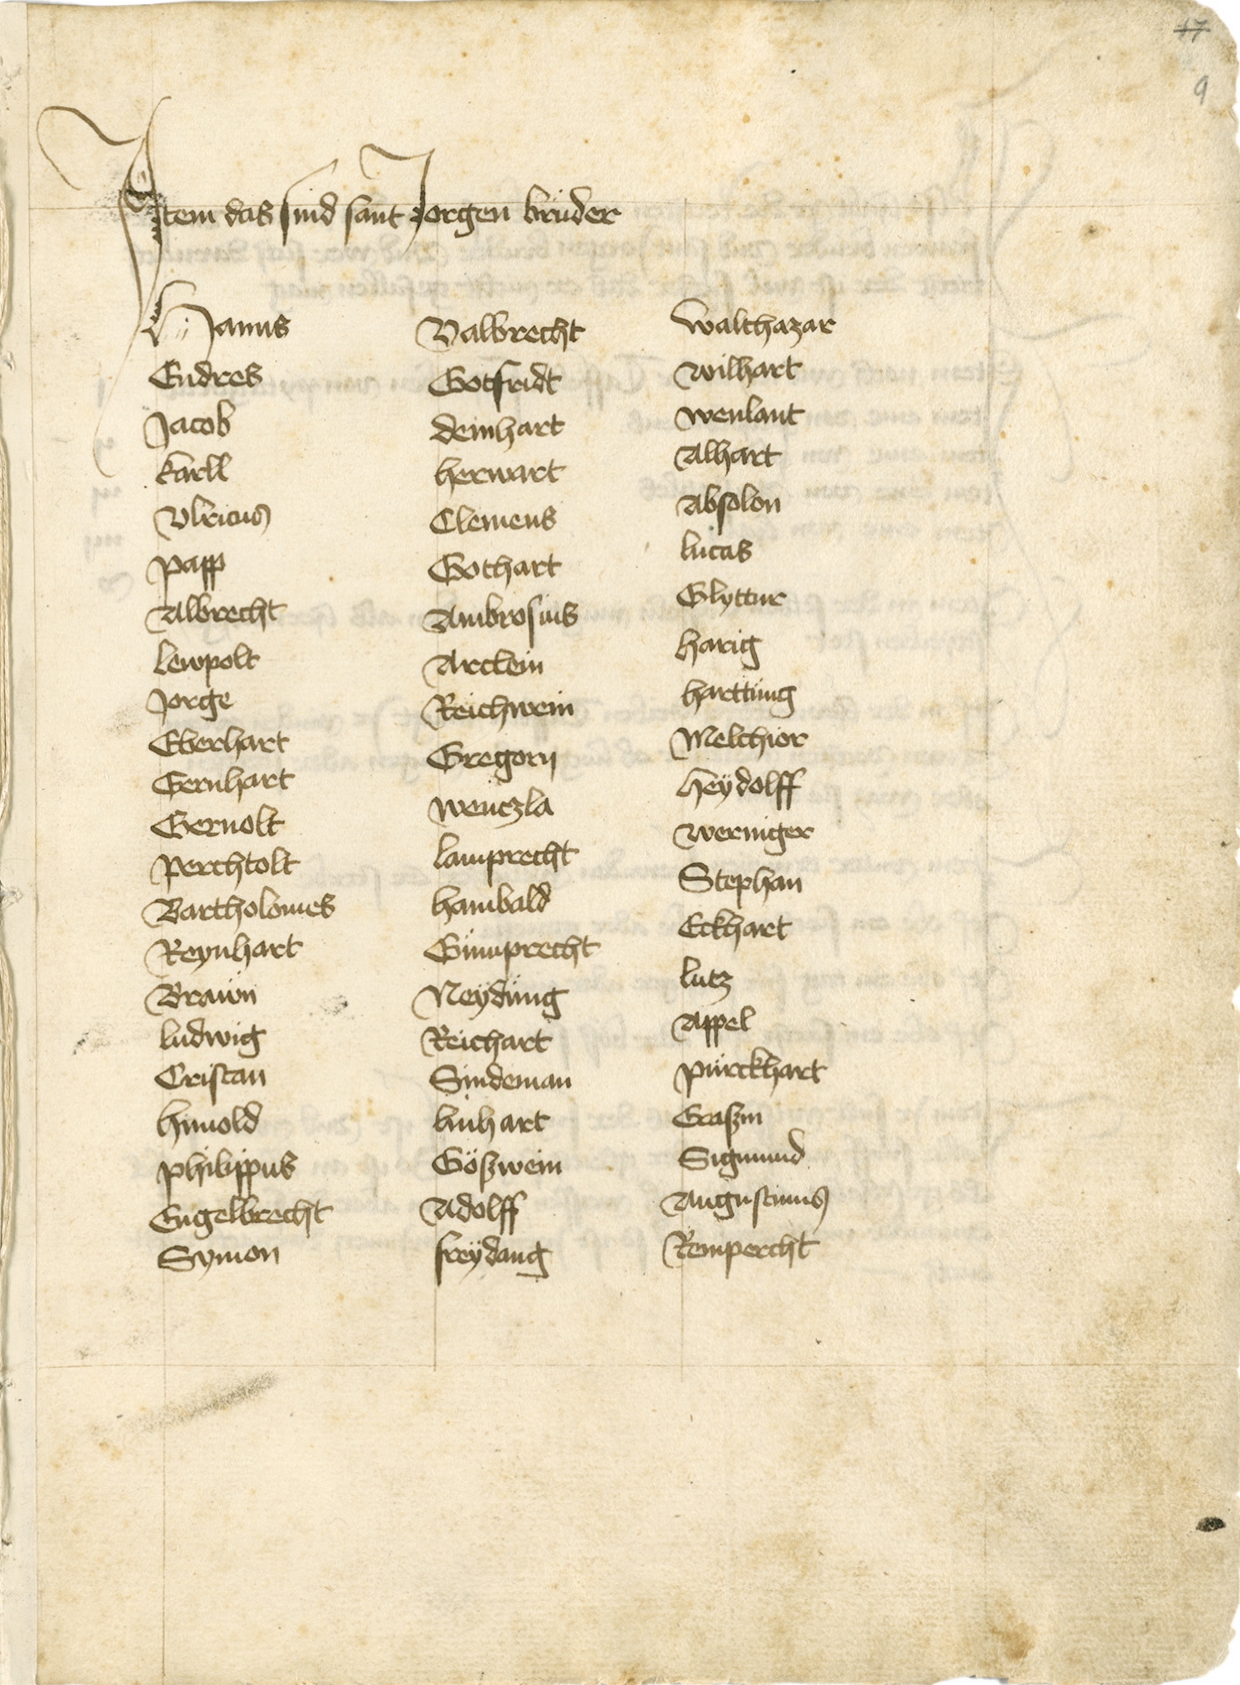 17
9
Item das sind sant Jorgen bruder
Hanns
Endres
Jacob
karll
Vlricus
papp
Albrecht
lewpolt
Jorge
Eberhart
Gernhart
Gernolt
perchtolt
Bartholomes
Reynhart
Brawn
ludwig
Cristan
hinold
philippus
Engelbrecht
Symon
Valbrecht
Gotfridt
deinhart
herwart
Clemens
Gothart
Ambrosius
Arclein
Reichwein
Gregorij
wenczla
lamprecht
hambald
Gumprecht
Neÿdung
Reichart
Sindeman
linhart
Gößwein
Adolff
freÿdang
walthazar
wilhart
wenlant
Alhart
Absolon
lucas
Glyttur
harig
harttung
Melchior
heÿdolff
werniger
Stephan
Eckhart
lutz
Appel
purckhart
Eraßm
Sigmund
Augustinus
Rempercht